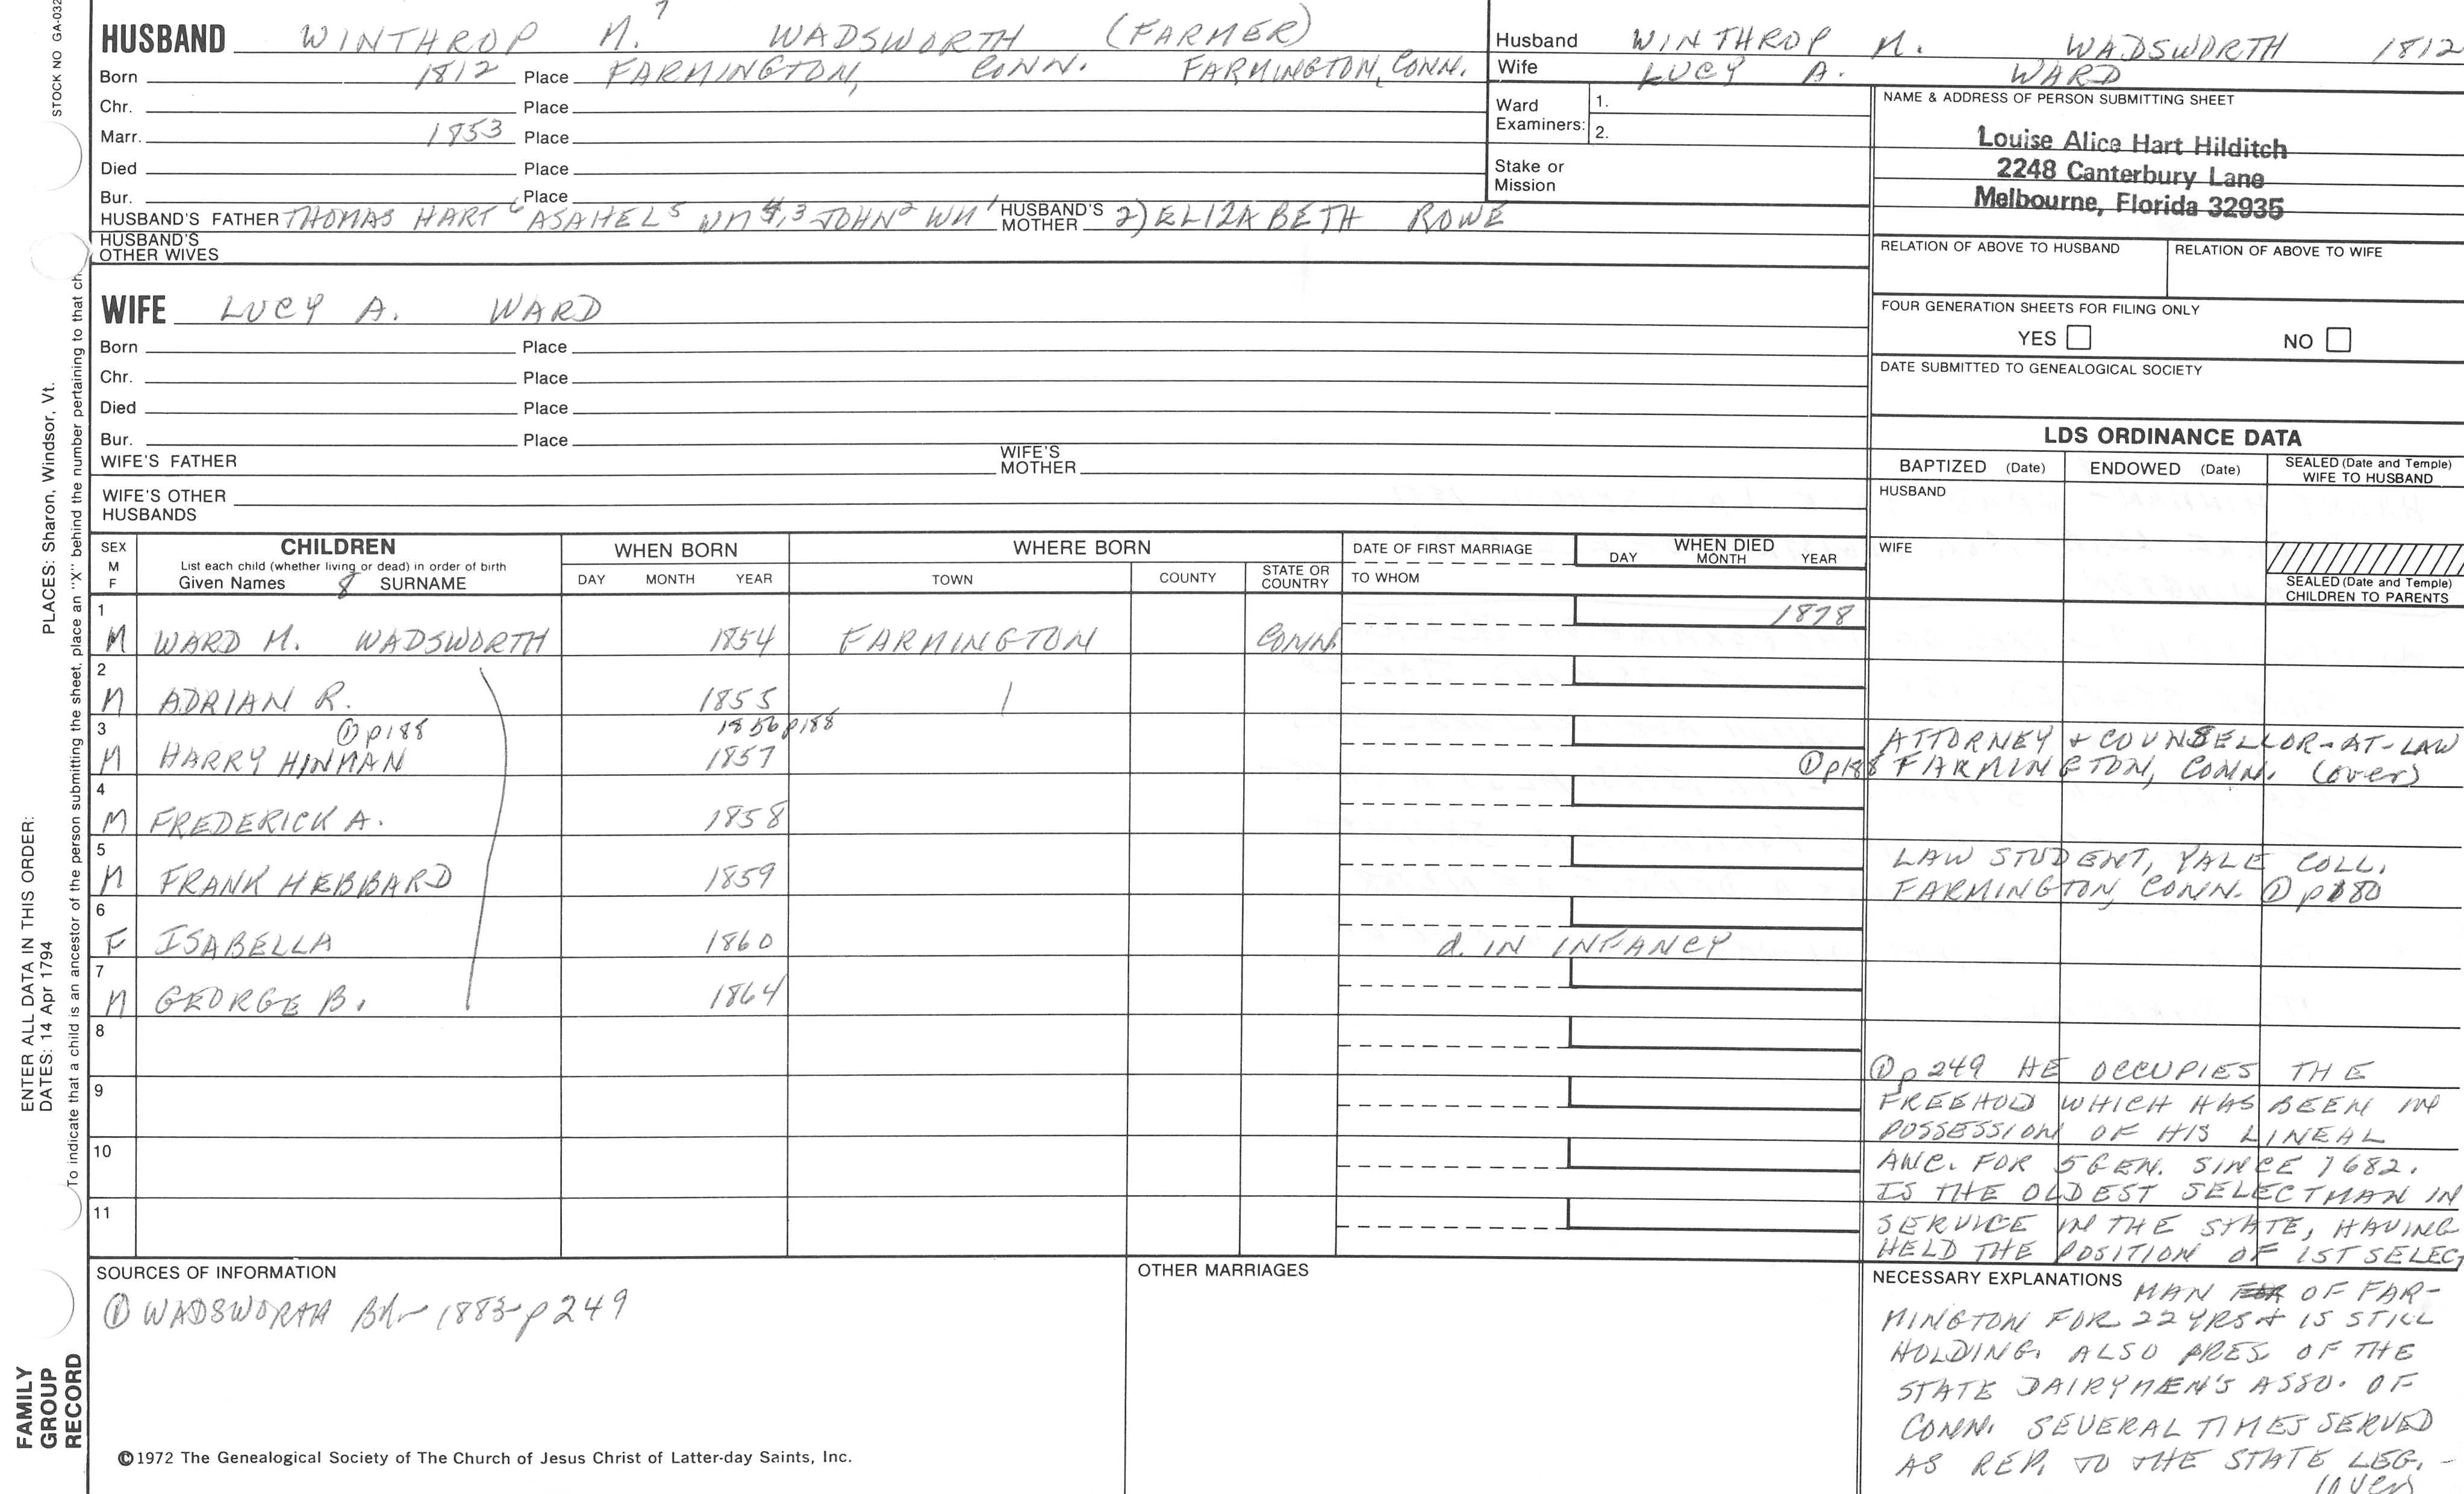 STOCK NO GA-032
HUSBAND WINTHROP M.⁷ WADSWORTH (FARMER)
Born 1812 Place FARMINGTON, CONN. FARMINGTON, CONN.
Chr. Place
Marr. 1853 Place
Died Place
Bur. Place
HUSBAND'S FATHER THOMAS HART⁶ ASAHEL⁵ WM⁴,³ JOHN² WM¹ HUSBAND'S MOTHER 2) ELIZABETH ROWE
HUSBAND'S OTHER WIVES
Husband WINTHROP M. WADSWORTH 1812
Wife LUCY A. WARD
Ward Examiners: 1.
2.
Stake or Mission
NAME & ADDRESS OF PERSON SUBMITTING SHEET
Louise Alice Hart Hilditch
2248 Canterbury Lane
Melbourne, Florida 32935
RELATION OF ABOVE TO HUSBAND RELATION OF ABOVE TO WIFE
FOUR GENERATION SHEETS FOR FILING ONLY
YES NO
DATE SUBMITTED TO GENEALOGICAL SOCIETY
WIFE LUCY A. WARD
Born Place
Chr. Place
Died Place
Bur. Place
WIFE'S FATHER WIFE'S MOTHER
WIFE'S OTHER HUSBANDS
LDS ORDINANCE DATA
BAPTIZED (Date) ENDOWED (Date) SEALED (Date and Temple) WIFE TO HUSBAND
HUSBAND
WIFE
SEALED (Date and Temple) CHILDREN TO PARENTS
SEX M F CHILDREN WHEN BORN WHERE BORN DATE OF FIRST MARRIAGE WHEN DIED
List each child (whether living or dead) in order of birth
Given Names 8 SURNAME DAY MONTH YEAR TOWN COUNTY STATE OR COUNTRY TO WHOM DAY MONTH YEAR
1 M WARD M. WADSWORTH 1854 FARMINGTON CONN. 1878
2 M ADRIAN R. 1855
3 M HARRY HINMAN ① p188 1856 p188 1857 ATTORNEY & COUNSELLOR-AT-LAW
① p188 FARMINGTON, CONN. (over)
4 M FREDERICK A. 1858
5 M FRANK HEBBARD 1859 LAW STUDENT, YALE COLL.
FARMINGTON, CONN. ① p180
6 F ISABELLA 1860 d. IN INFANCY
7 M GEORGE B. 1864
8
9
10
11
① p 249 HE OCCUPIES THE
FREEHOLD WHICH HAS BEEN IN
POSSESSION OF HIS LINEAL
ANC. FOR 5 GEN. SINCE 1682.
IS THE OLDEST SELECTMAN IN
SERVICE IN THE STATE, HAVING
HELD THE POSITION OF 1ST SELECT
NECESSARY EXPLANATIONS MAN FOR OF FAR-
MINGTON FOR 22 YRS & IS STILL
HOLDING. ALSO PRES. OF THE
STATE DAIRYMEN'S ASSO. OF
CONN. SEVERAL TIMES SERVED
AS REP. TO THE STATE LEG. -
(over)
SOURCES OF INFORMATION
① WADSWORTH Bk - 1883 - p 249
OTHER MARRIAGES
©1972 The Genealogical Society of The Church of Jesus Christ of Latter-day Saints, Inc.
FAMILY GROUP RECORD
ENTER ALL DATA IN THIS ORDER:
DATES: 14 Apr 1794
PLACES: Sharon, Windsor, Vt.
To indicate that a child is an ancestor of the person submitting the sheet, place an "X" behind the number pertaining to that ch